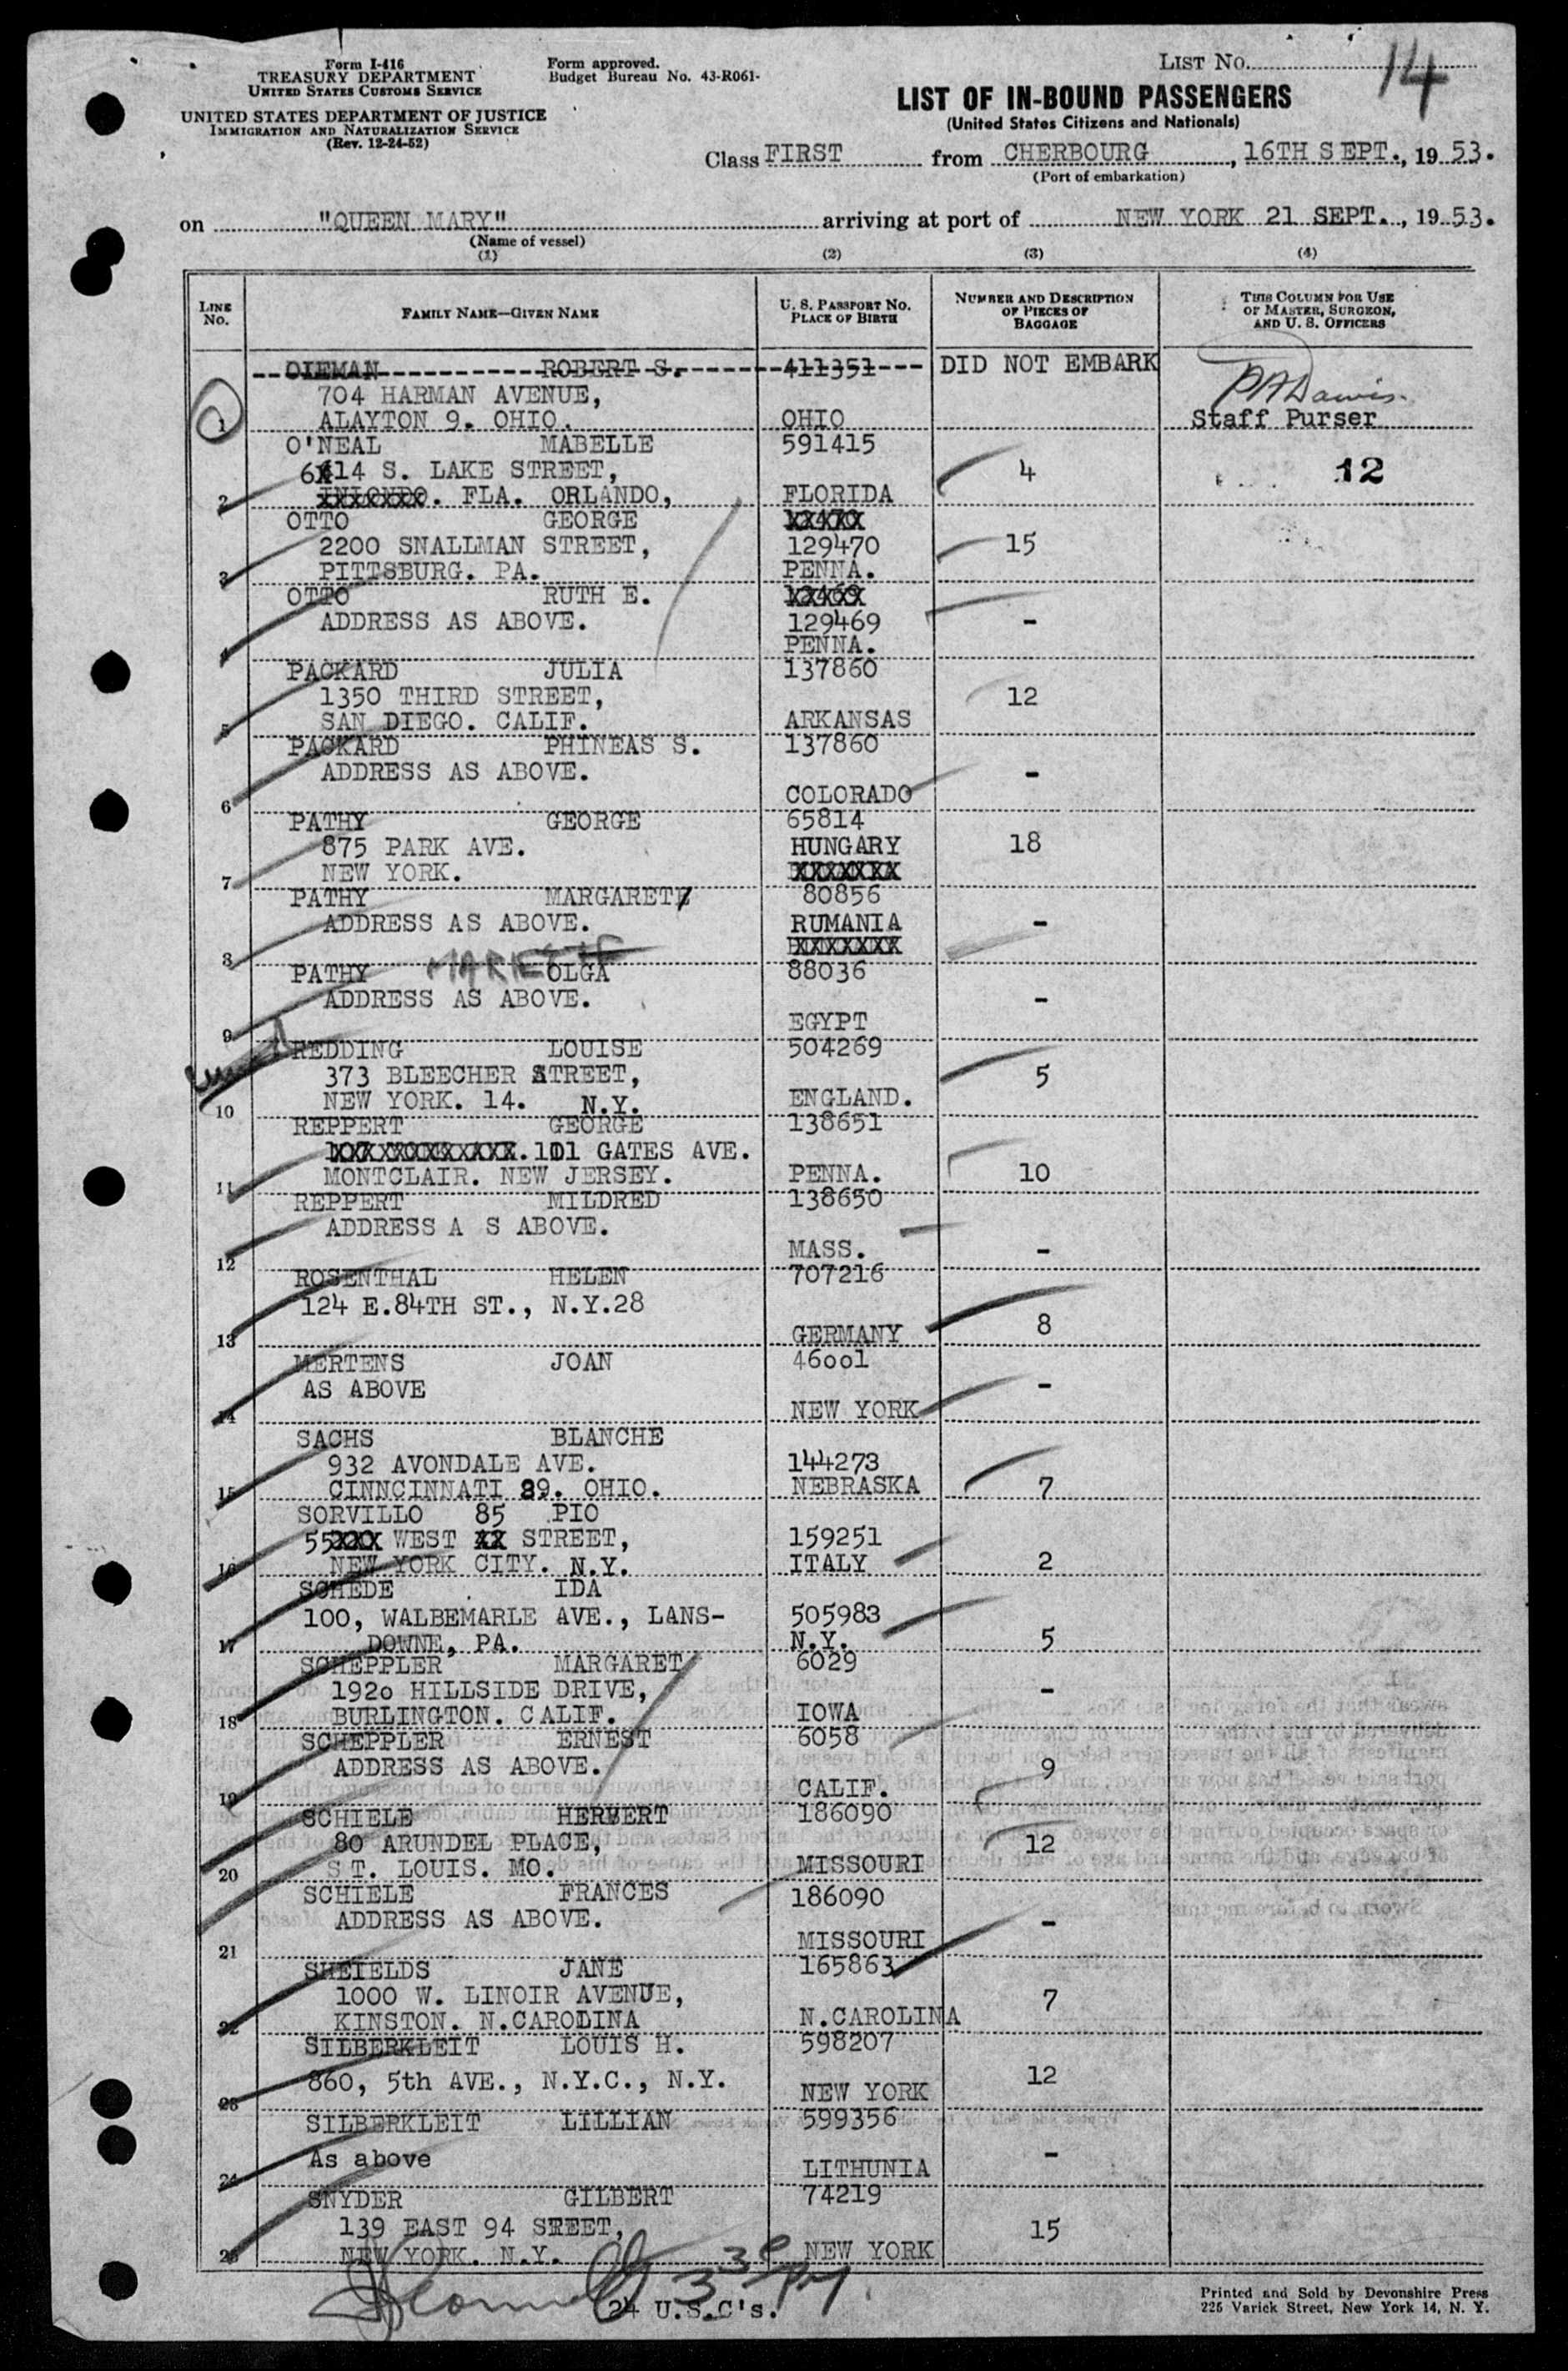 Form I-416
TREASURY DEPARTMENT
UNITED STATES CUSTOMS SERVICE
UNITED STATES DEPARTMENT OF JUSTICE
IMMIGRATION AND NATURALIZATION SERVICE
(Rev. 12-24-52)
Form approved.
Budget Bureau No. 43-R061-
LIST NO. 14
LIST OF IN-BOUND PASSENGERS
(United States Citizens and Nationals)
Class FIRST from CHERBOURG, 16TH SEPT., 19 53.
(Port of embarkation)
on "QUEEN MARY" arriving at port of NEW YORK 21 SEPT., 19 53.
(Name of vessel)
(1) (2) (3) (4)
LINE No. FAMILY NAME—GIVEN NAME U. S. PASSPORT NO. PLACE OF BIRTH NUMBER AND DESCRIPTION OF PIECES OF BAGGAGE THIS COLUMN FOR USE OF MASTER, SURGEON, AND U. S. OFFICERS
OIEMAN ROBERT S. 411351 DID NOT EMBARK
704 HARMAN AVENUE,
1 ALAYTON 9. OHIO. OHIO Staff Purser
O'NEAL MABELLE 591415
614 S. LAKE STREET, 4 12
2 FLA. ORLANDO, FLORIDA
OTTO GEORGE
2200 SNALLMAN STREET, 129470 15
3 PITTSBURG. PA. PENNA.
OTTO RUTH E.
ADDRESS AS ABOVE. 129469 -
4 PENNA.
PACKARD JULIA 137860
1350 THIRD STREET, 12
5 SAN DIEGO. CALIF. ARKANSAS
PACKARD PHINEAS S. 137860
ADDRESS AS ABOVE. -
6 COLORADO
PATHY GEORGE 65814
875 PARK AVE. HUNGARY 18
7 NEW YORK.
PATHY MARGARET 80856
ADDRESS AS ABOVE. RUMANIA -
8
PATHY OLGA 88036
ADDRESS AS ABOVE. -
9 EGYPT
REDDING LOUISE 504269
373 BLEECHER STREET, 5
10 NEW YORK. 14. N.Y. ENGLAND.
REPPERT GEORGE 138651
101 GATES AVE.
11 MONTCLAIR. NEW JERSEY. PENNA. 10
REPPERT MILDRED 138650
ADDRESS A S ABOVE.
12 MASS. -
ROSENTHAL HELEN 707216
124 E.84TH ST., N.Y.28
13 GERMANY 8
MERTENS JOAN 46001
AS ABOVE -
14 NEW YORK
SACHS BLANCHE
932 AVONDALE AVE. 144273
15 CINNCINNATI 29. OHIO. NEBRASKA 7
SORVILLO 85 PIO
55 WEST STREET, 159251
16 NEW YORK CITY. N.Y. ITALY 2
SCHEDE IDA
100, WALBEMARLE AVE., LANS- 505983
17 DOWNE, PA. N.Y. 5
SCHEPPLER MARGARET 6029
1920 HILLSIDE DRIVE, -
18 BURLINGTON. CALIF. IOWA
SCHEPPLER ERNEST 6058
ADDRESS AS ABOVE. 9
19 CALIF.
SCHIELE HERBERT 186090
80 ARUNDEL PLACE, 12
20 ST. LOUIS. MO. MISSOURI
SCHIELE FRANCES 186090
ADDRESS AS ABOVE. -
21 MISSOURI
SHEIELDS JANE 165863
1000 W. LINOIR AVENUE, 7
22 KINSTON. N.CAROLINA N.CAROLINA
SILBERKLEIT LOUIS H. 598207
860, 5th AVE., N.Y.C., N.Y. 12
23 NEW YORK
SILBERKLEIT LILLIAN 599356
As above -
24 LITHUNIA
SNYDER GILBERT 74219
139 EAST 94 SREET, 15
25 NEW YORK. N.Y. NEW YORK
24 U.S.C's.
Printed and Sold by Devonshire Press
225 Varick Street, New York 14, N. Y.